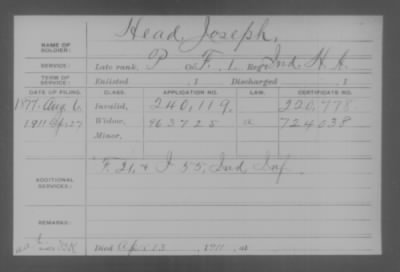 Head, Joseph.
NAME OF SOLDIER:
SERVICE: Late rank, P Co. F, 1 Reg't Ind. H. A.
TERM OF SERVICE: Enlisted , 1 Discharged , 1
DATE OF FILING. CLASS. APPLICATION NO. LAW. CERTIFICATE NO.
1877 Aug 6. Invalid, 240,119. 220,778
1911 Apr 27 Widow, 963725 a 724038
Minor,
ADDITIONAL SERVICES: F 21, & I 55, Ind Inf
REMARKS:
Died Apr 13, 1911, at